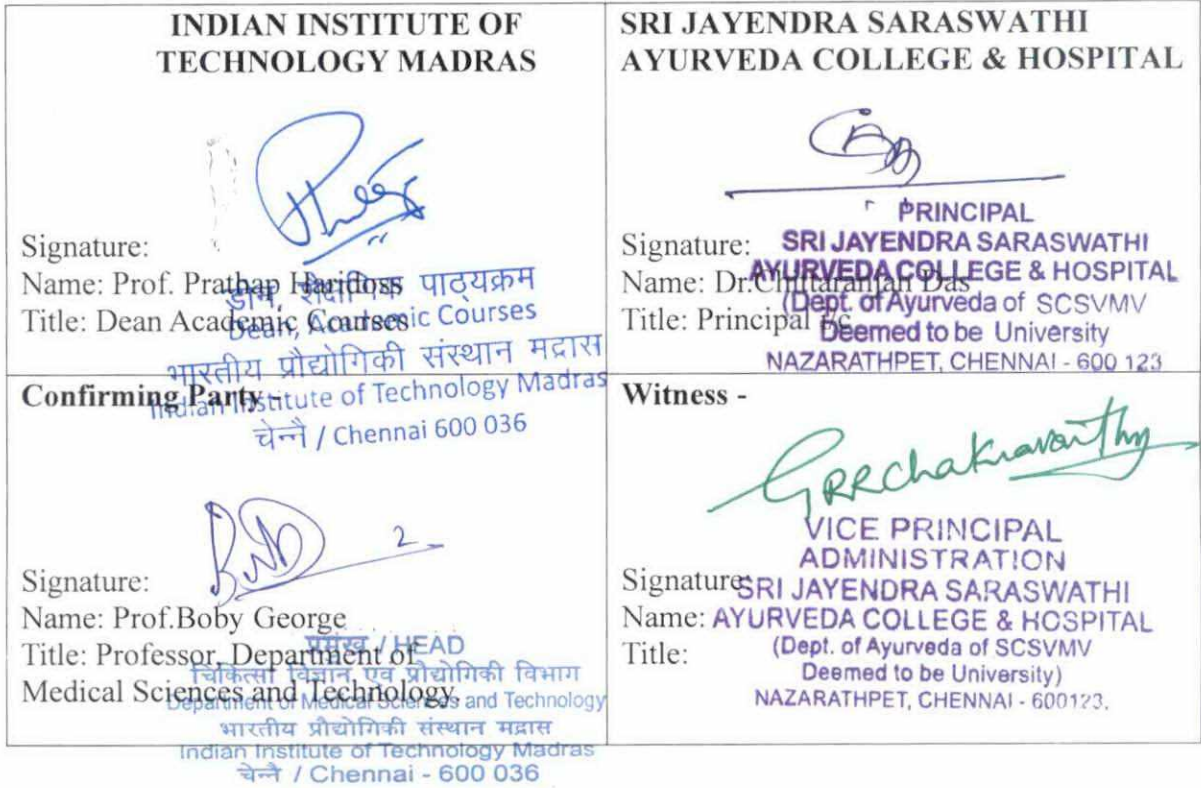 INDIAN INSTITUTE OF
TECHNOLOGY MADRAS
Signature:
Name: Prof. Prathap Haridoss
Title: Dean Academic Courses
डीन, शैक्षणिक पाठ्यक्रम
Dean, Academic Courses
भारतीय प्रौद्योगिकी संस्थान मद्रास
Indian Institute of Technology Madras
चेन्नै / Chennai 600 036
SRI JAYENDRA SARASWATHI
AYURVEDA COLLEGE & HOSPITAL
Signature:
Name: Dr.Chittaranjan Das
Title: Principal
PRINCIPAL
SRI JAYENDRA SARASWATHI
AYURVEDA COLLEGE & HOSPITAL
(Dept. of Ayurveda of SCSVMV
Deemed to be University
NAZARATHPET, CHENNAI - 600 123
Confirming Party -
Signature:
Name: Prof.Boby George
Title: Professor, Department of
Medical Sciences and Technology.
प्रमुख / HEAD
चिकित्सा विज्ञान एवं प्रौद्योगिकी विभाग
Department of Medical Sciences and Technology
भारतीय प्रौद्योगिकी संस्थान मद्रास
Indian Institute of Technology Madras
चेन्नै / Chennai - 600 036
Witness -
GRRChakravarthy
Signature:
Name:
Title:
VICE PRINCIPAL
ADMINISTRATION
SRI JAYENDRA SARASWATHI
AYURVEDA COLLEGE & HOSPITAL
(Dept. of Ayurveda of SCSVMV
Deemed to be University)
NAZARATHPET, CHENNAI - 600123.